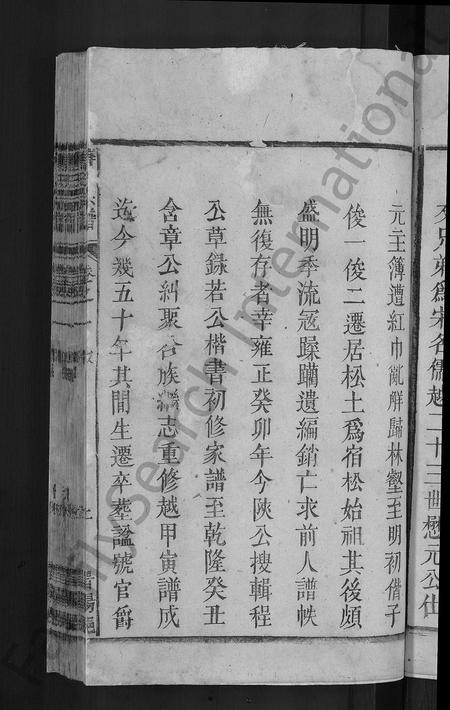 文兄弟為宋名儒越二十三世懋元公仕
元主簿遭紅巾亂解歸林壑至明初偕子
俊一俊二遷居松土為宿松始祖其後頗
盛明季流冦躁躪遺編銷亡求前人譜帙
無復存者幸雍正癸卯年今陝公搜輯程
公草録若公楷書初修家譜至乾隆癸丑
含章公糾聚各族繼志重修越甲寅譜成
迄今幾五十年其間生遷卒塟諡號官爵
FamilySearch International